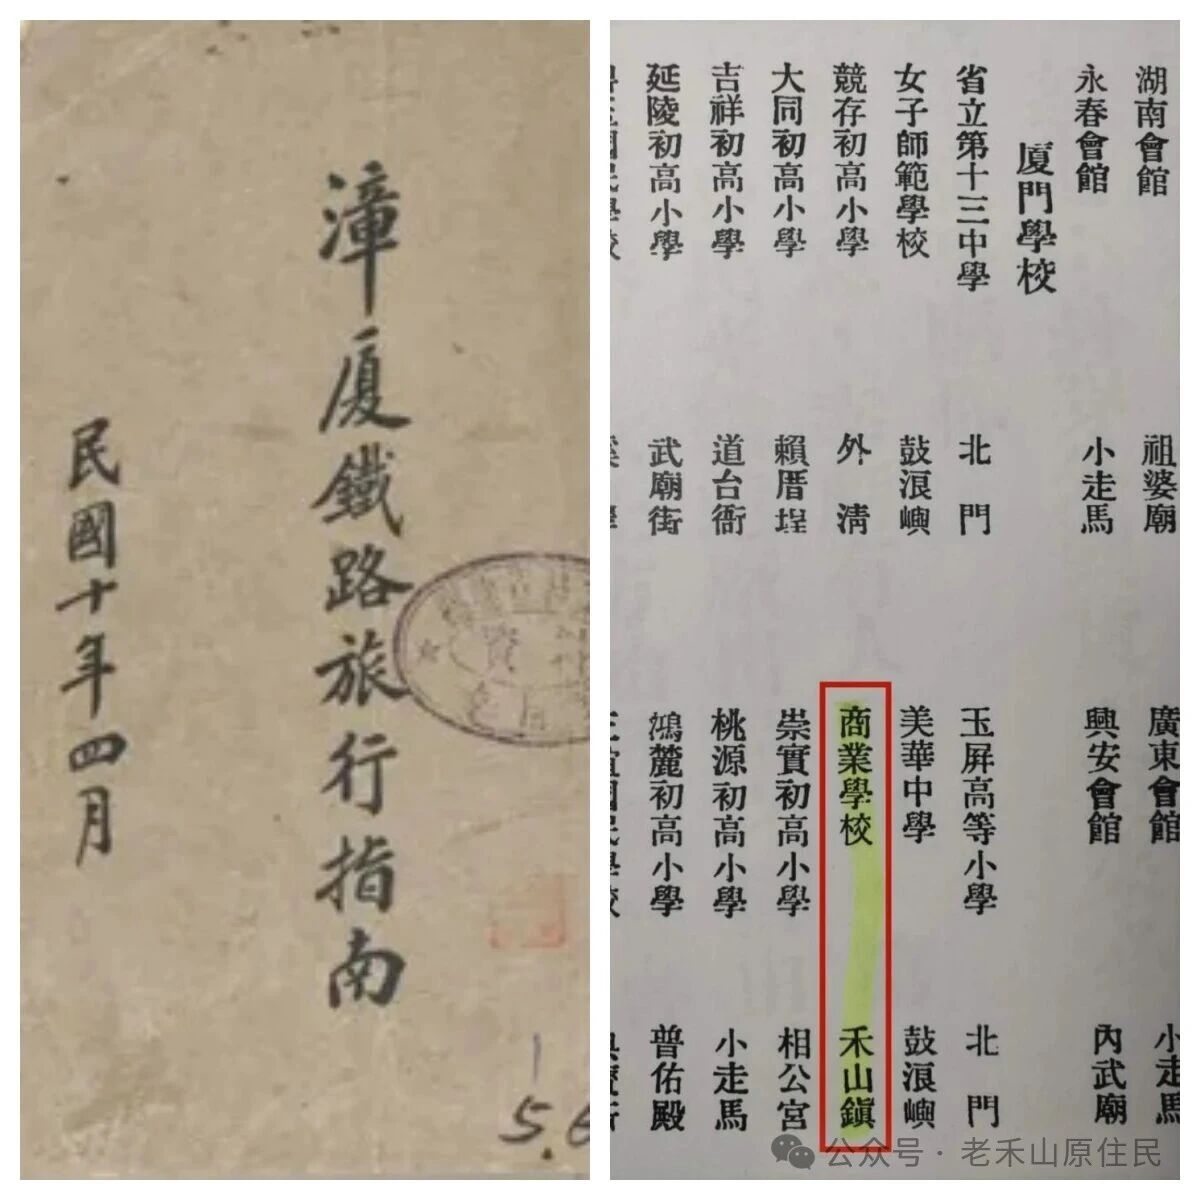 漳廈鐵路旅行指南
民國十年四月
5.6
湖南會館 祖婆廟 廣東會館 小走馬
永春會館 小走馬 興安會館 內武廟
廈門學校
省立第十三中學 北門 玉屏高等小學 北門
女子師範學校 鼓浪嶼 美華中學 鼓浪嶼
競存初高小學 外淸 商業學校 禾山鎭
大同初高小學 賴厝埕 崇實初高小學 相公宮
吉祥初高小學 道台衙 桃源初高小學 小走馬
延陵初高小學 武廟街 鴻麓初高小學 普佑殿
公众号·老禾山原住民